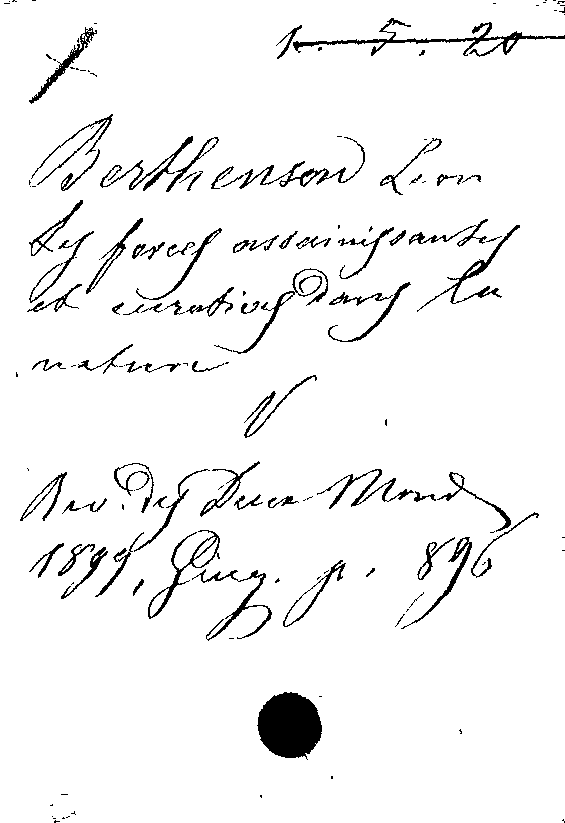 1. 5. 20
Berthenson Leon
Les forces assainissantes
et curatives dans la
nature
V
Rev. des Deux Mond
1899, p. 896